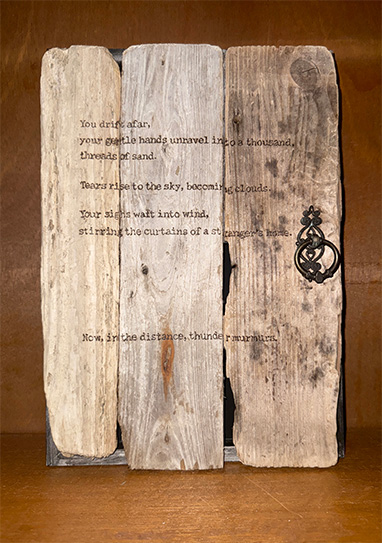 You drift afar,
your gentle hands unravel into a thousand,
threads of sand.
Tears rise to the sky, becoming clouds.
Your sighs waft into wind,
stirring the curtains of a stranger's home.
Now, in the distance, thunder murmurs.